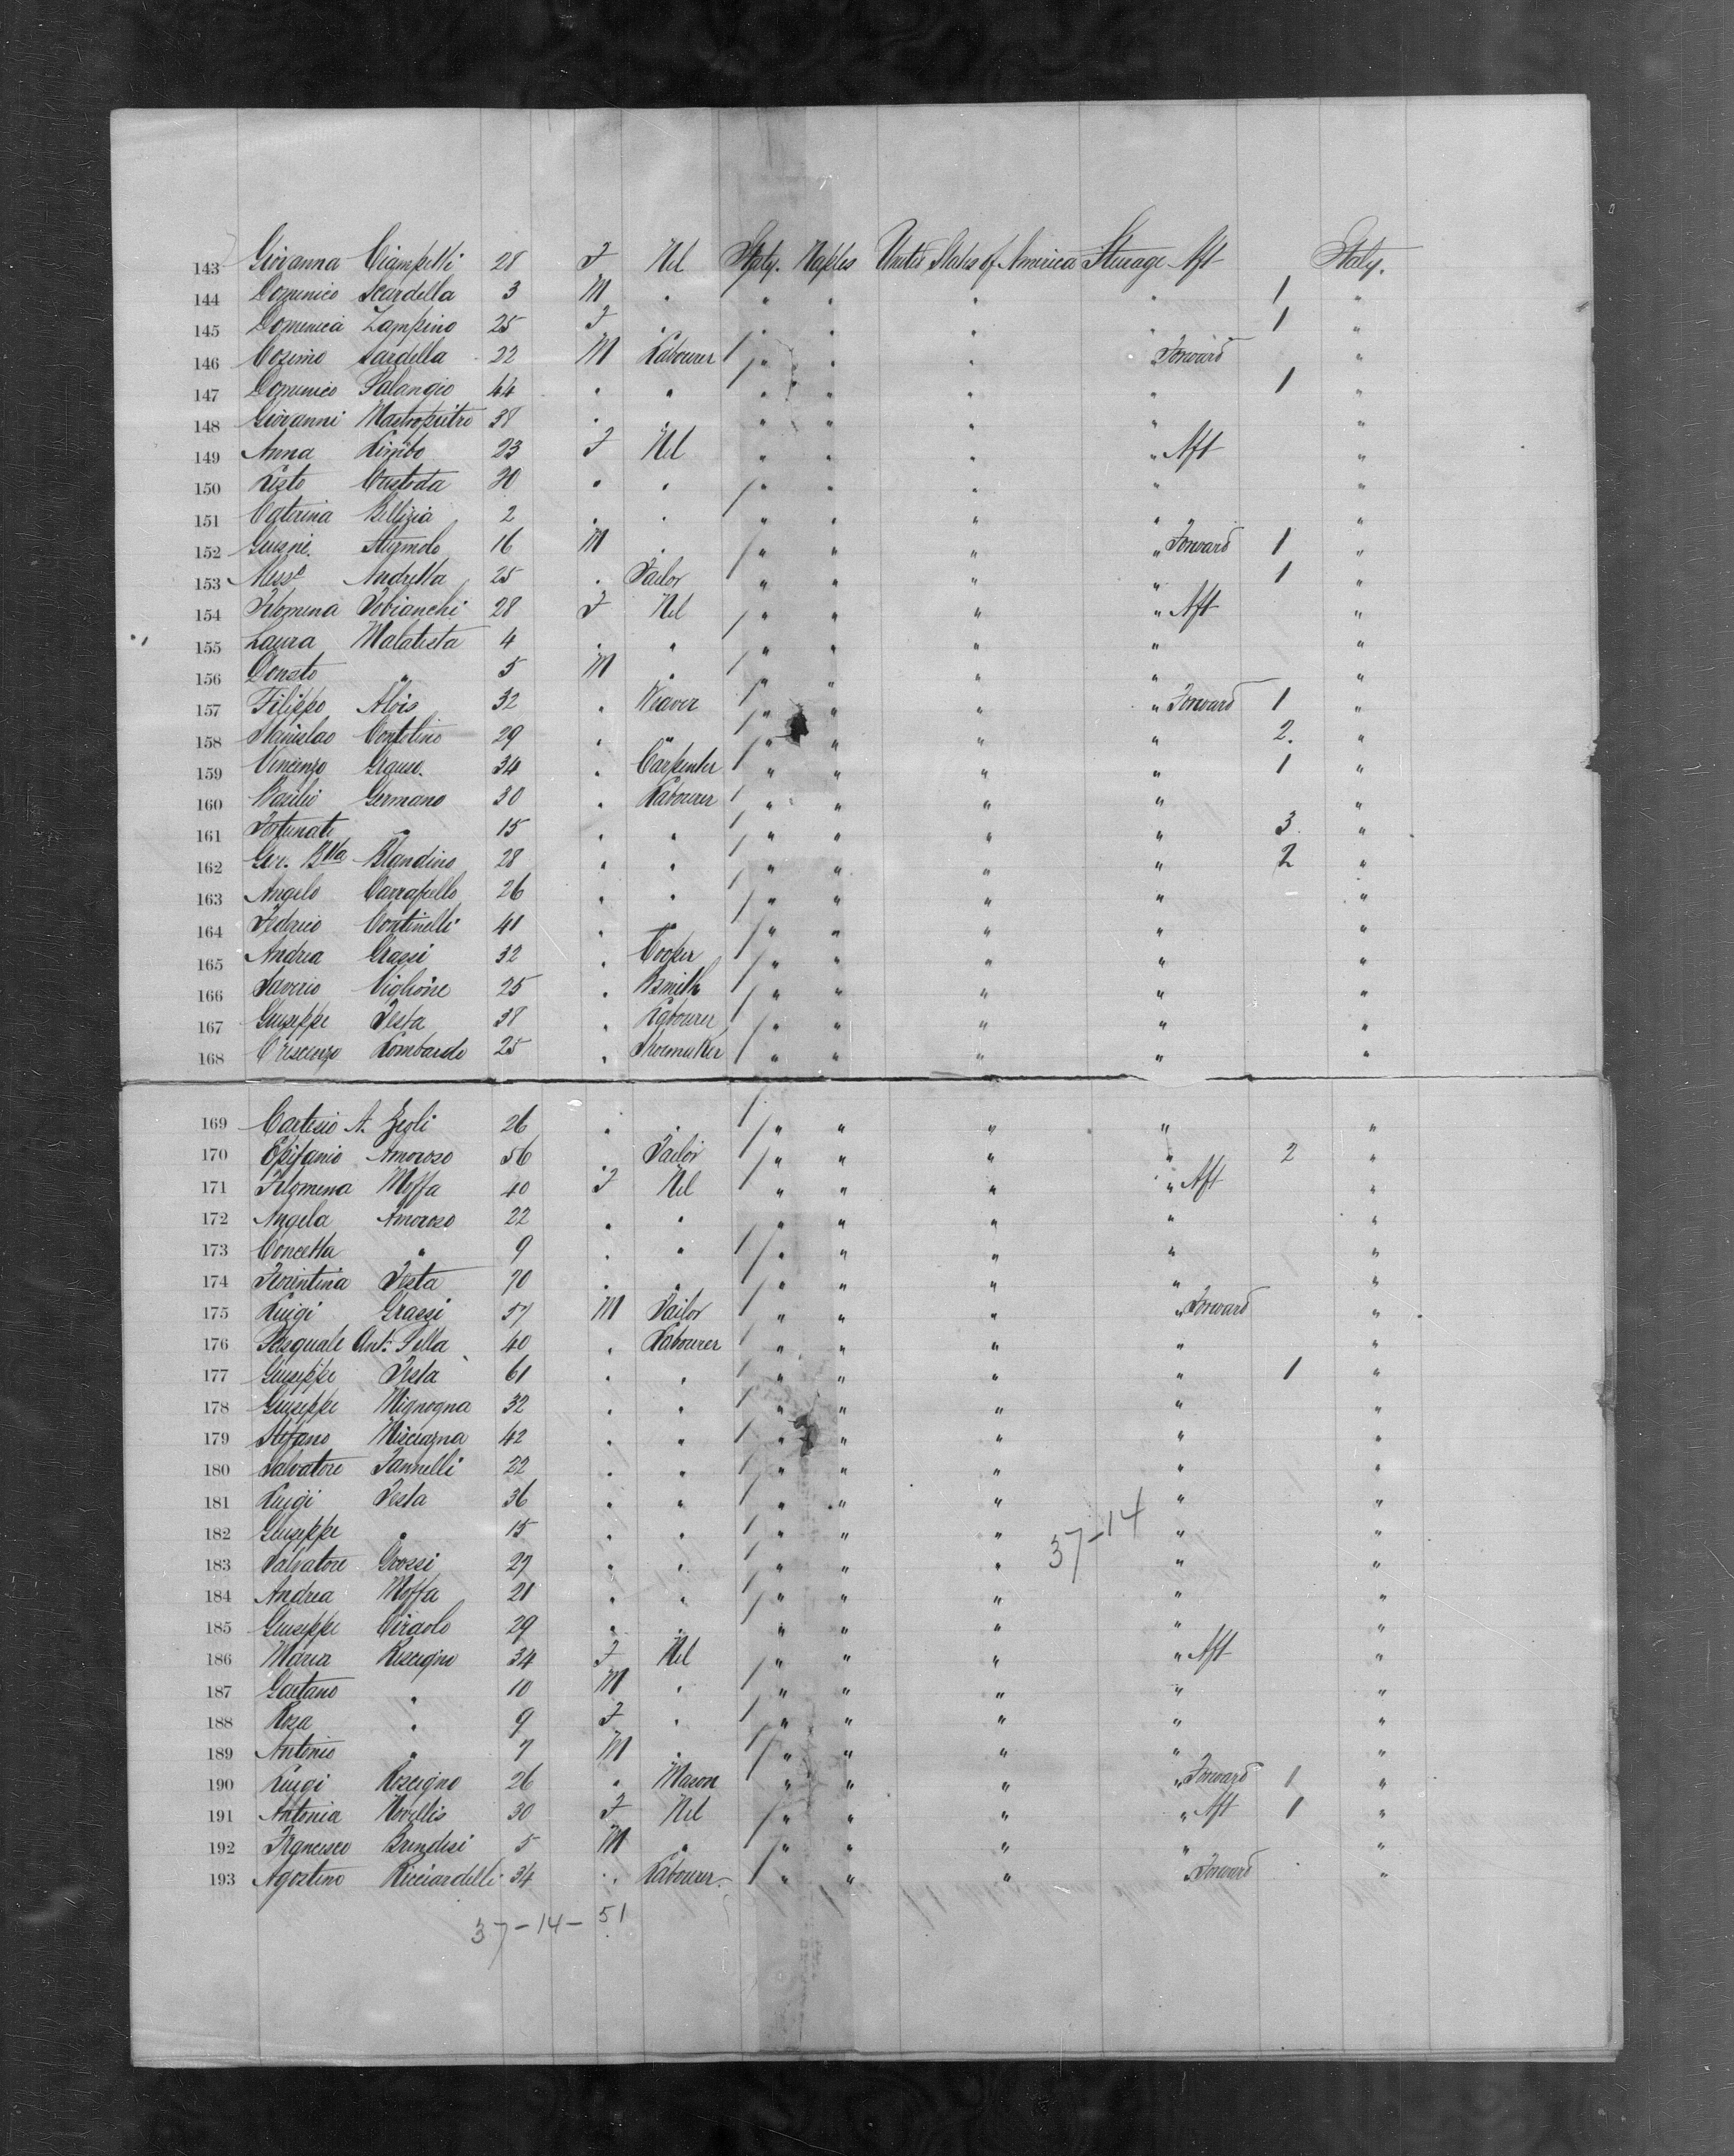 143 Giovanna Ciampelli 28 F Nil Italy. Naples United States of America Steerage Aft Italy.
144 Domenico Scardella 3 M " " " " " 1 "
145 Domenica Zampino 25 F " " " " " 1 "
146 Cosimo Sardella 22 M Labourer " " " " Forward "
147 Domenico Palangio 44 " " " " " " 1 "
148 Giovanni Mastropietro 38 " " " " " "
149 Anna Limbo 23 F Nil " " " " Aft "
150 Listo Custoda 30 " " " " " " "
151 Caterina Bellizia 2 " " " " " " "
152 Giuspe. 16 M " " " " " Forward 1 "
153 Messe Andretta 25 " Tailor " " " " 1 "
154 Filomena Tobianchi 28 F Nil " " " " Aft "
155 Laura Malatesta 4 " " " " " " "
156 Donato " 5 M " " " " " "
157 Filippo Alois 32 " Weaver " " " " Forward 1 "
158 Stanislao Contolino 29 " " " " " 2. "
159 Vincenzo Grauso. 34 " Carpenter " " " " 1 "
160 Basilio Germano 30 " Labourer " " " " "
161 Fortunato " 15 " " " " " " 3. "
162 Gio. Btta Blandino 28 " " " " " " 2 "
163 Angelo Carrapello 26 " " " " " " "
164 Federico Continelli 41 " " " " " "
165 Andrea Grassi 32 " Cooper " " " " "
166 Saverio Viglione 25 " Bsmith " " " " "
167 Giuseppe Testa 38 " Labourer " " " " "
168 Criscienzo Lombardo 25 " Shoemaker " " " " "
169 Cartesio A. Zegli 26 " " " " " " "
170 Epifanio Amoroso 56 Tailor " " " " 2 "
171 Filomena Moffa 40 F Nil " " " " Aft "
172 Angela Amoroso 22 " " " " " " "
173 Concetta " 9 " " " " " " "
174 Fiorintina Testa 70 " " " " " " "
175 Luigi Grassi 57 M Tailor " " " " Forward "
176 Pasquale Ant. Sella 40 " Labourer " " " " "
177 Giuseppe Testa 61 " " " " " " 1 "
178 Giuseppe Mignogna 32 " " " " " " "
179 Stefano Misciagna 42 " " " " " " "
180 Salvatore Iannelli 22 " " " " " " "
181 Luigi Testa 36 " " " " " " "
182 Giuseppe " 15 " " " " " " "
37-14
183 Salvatore Grossi 27 " " " " " " "
184 Andrea Moffa 21 " " " " " " "
185 Giuseppe Ciraolo 29 " " " " " " "
186 Maria Riscigno 34 F Nil " " " " Aft "
187 Gaetano " 10 M " " " " " "
188 Rosa " 9 F " " " " " "
189 Antonio " 7 M " " " " " "
190 Luigi Roscigno 26 " Mason " " " " Forward 1 "
191 Antonia Novellis 30 F Nil " " " " Aft 1 "
192 Francesco Brindisi 5 M " " " " " "
193 Agostino Ricciardelli 34 " Labourer " " " Forward "
37-14-51